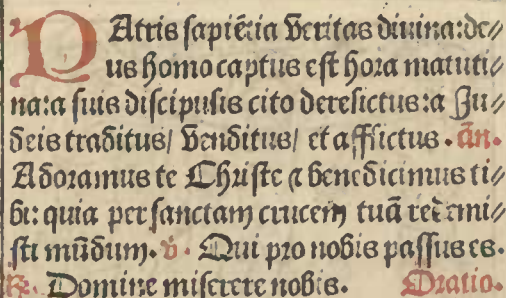 PAtris sapiẽtia veritas diuina: de⸗
us homo captus est hora matuti⸗
na: a suis discipulis cito derelictus: a Ju⸗
deis traditus/ venditus/ et afflictus. ãn.
Adoramus te Christe ⁊ benedicimus ti⸗
bi: quia per sanctam crucem tuã redemi⸗
sti mũdum. v̉. Qui pro nobis passus es.
℞. Domine miserere nobis. Oratio.